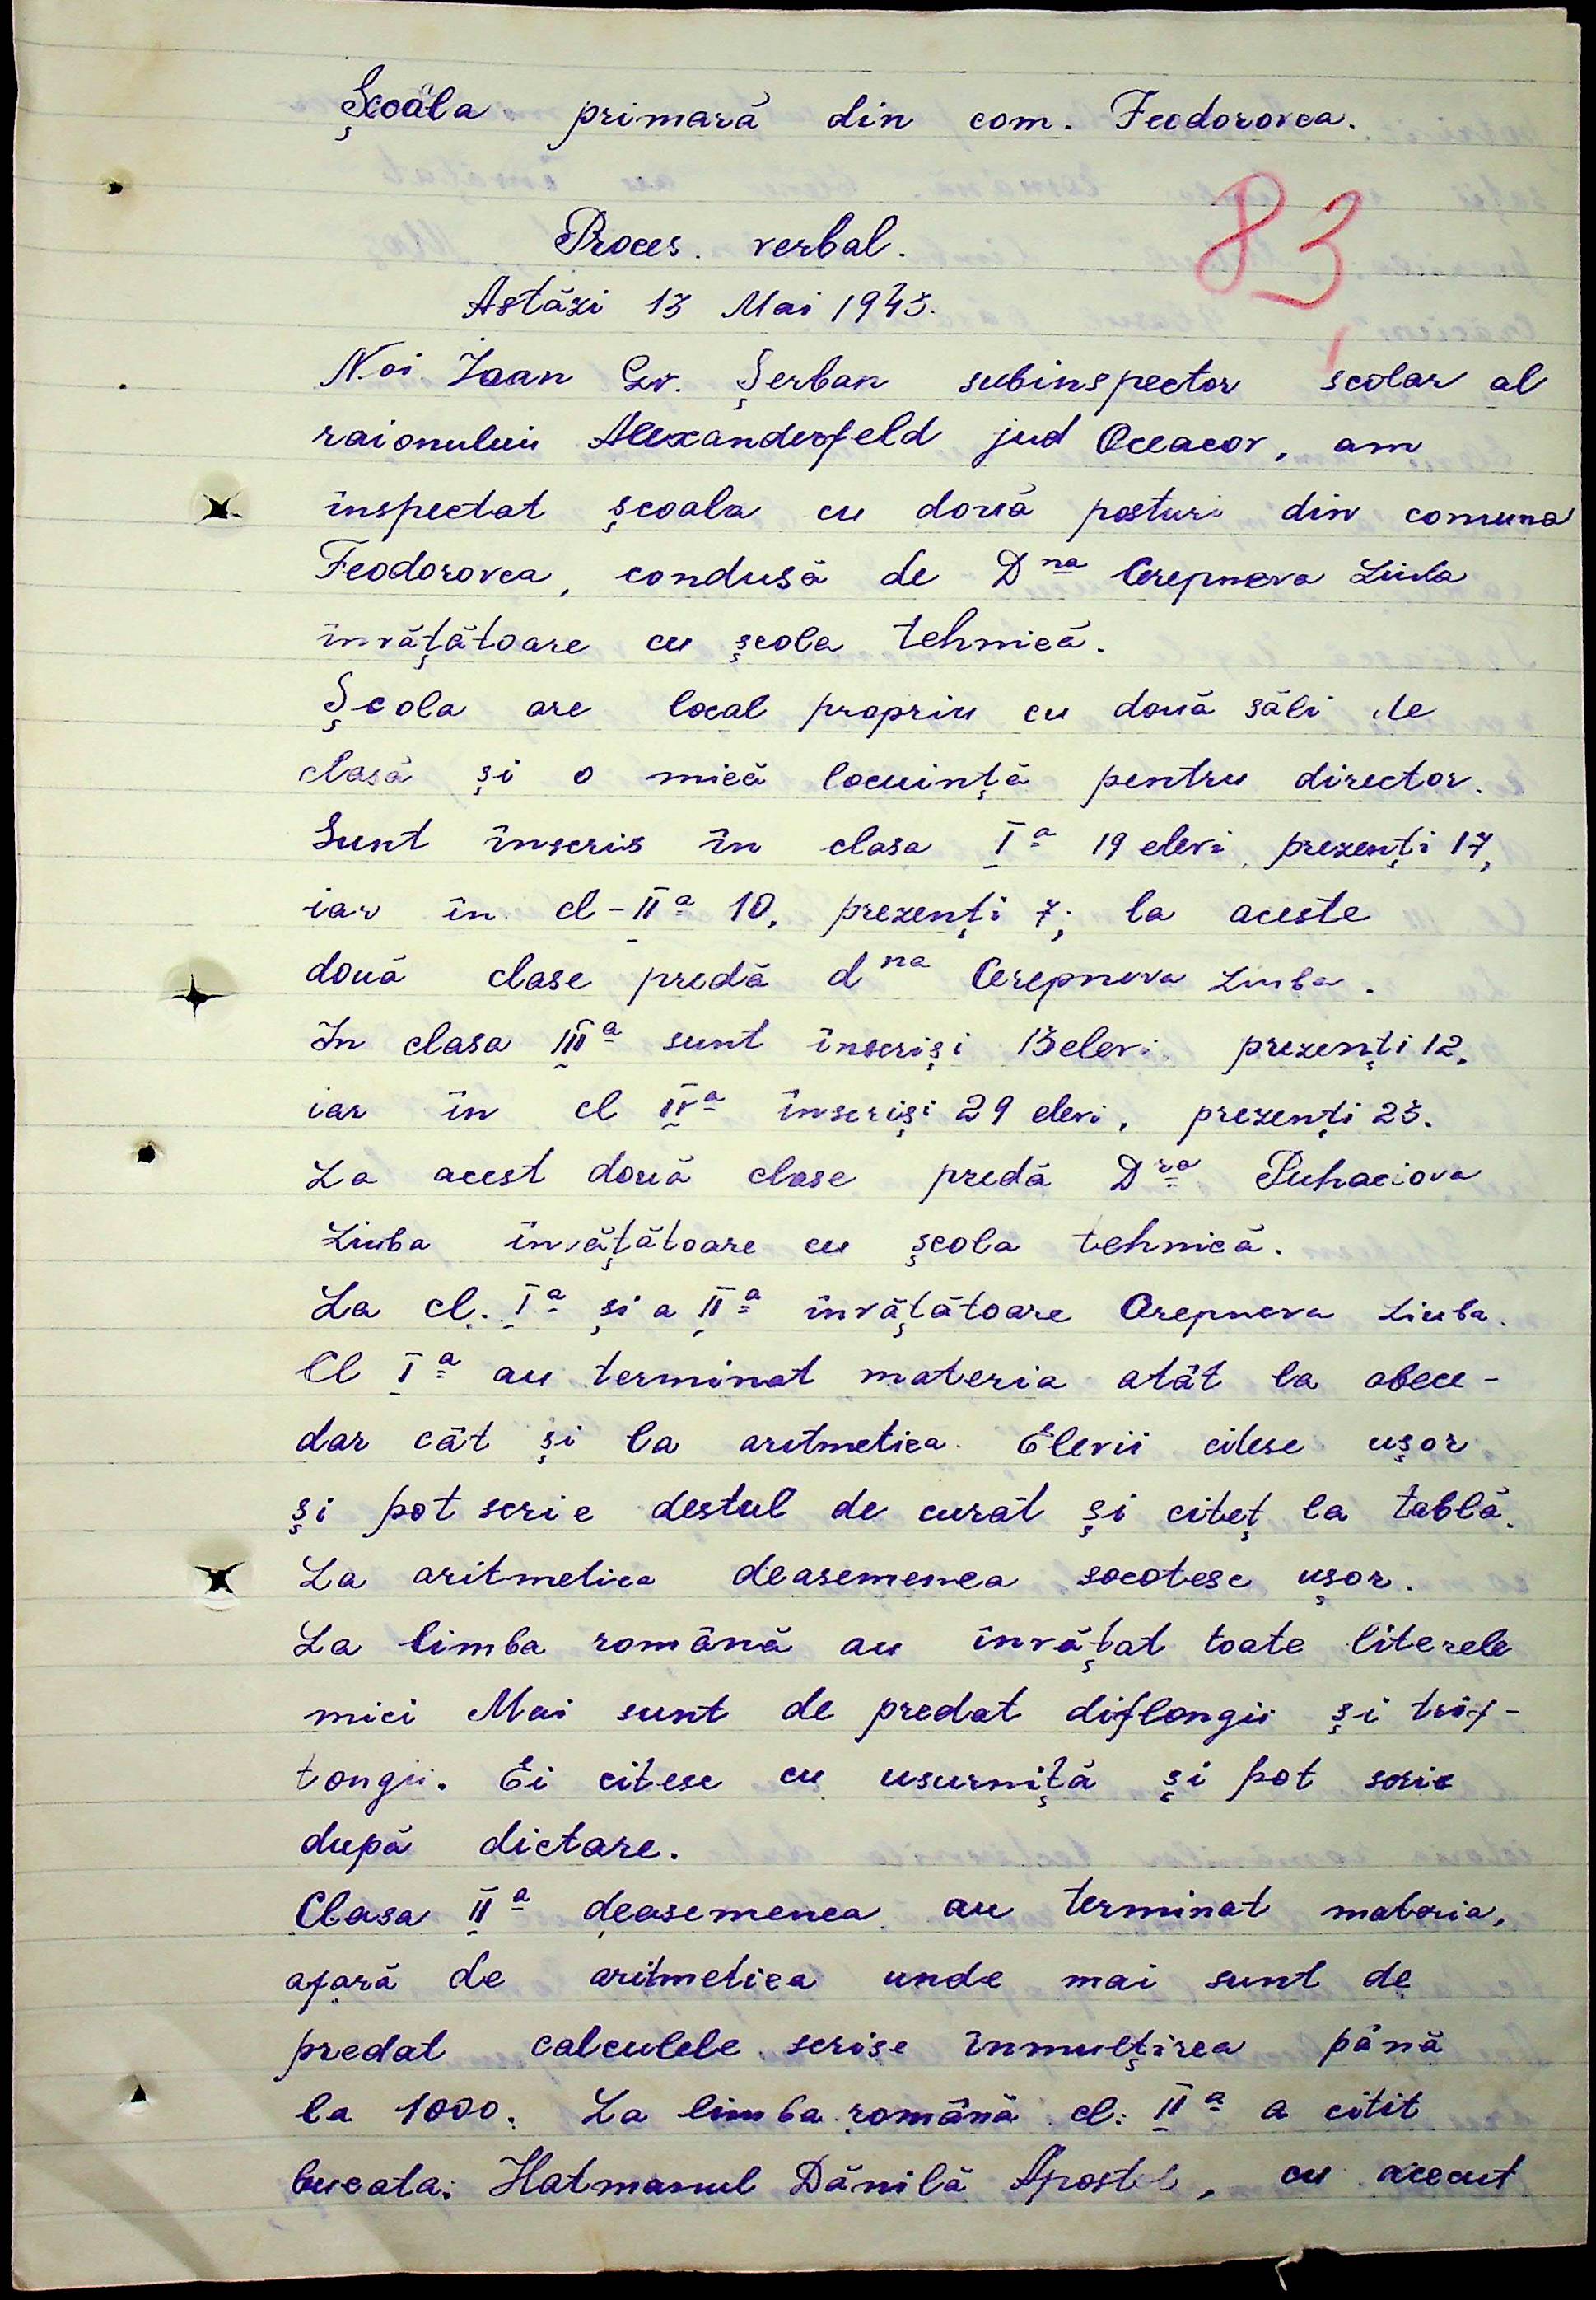 Școala primară din com. Feodorovca.
83
Proces. verbal.
Astăzi 13 Mai 1943.
Noi Ioan Gr. Șerban subinspector scolar al
raionului Alexanderfeld jud Oceacov, am
inspectat școala cu două posturi din comuna
Feodorovca, condusă de Dna Cerepneva Liuba
învățătoare cu școla tehnică.
Școla are local propriu cu două săli de
clasă și o mică locuință pentru director.
Sunt înscris în clasa Ia 19 elevi, prezenți 17,
iar în cl-IIa 10, prezenți 7; la aceste
două clase predă dna Cerepneva Liuba.
In clasa IIIa sunt înscriși 13 elevi prezenți 12,
iar în cl IVa înscriși 29 elevi, prezenți 23.
La acest două clase predă Dra Puhaciova
Liuba învățătoare cu școla tehnică.
La cl. Ia și a IIa învățătoare Cerepneva Liuba.
Cl Ia au terminat materia atât la abece-
dar cât și la aritmetica. Elevii citesc ușor
și pot scrie destul de curat și citeț la tablă.
La aritmetica deasemenea socotesc ușor.
La limba română au învățat toate literele
mici Mai sunt de predat diflongii și trif-
tongii. Ei citesc cu usurniță și pot scrie
după dictare.
Clasa IIa deasemenea au terminat materia,
afară de aritmetica unde mai sunt de
predat calculele scrise înmulțirea până
la 1000. La limba română cl: IIa a citit
bucata: Hatmanul Dănilă Apostol, cu accent